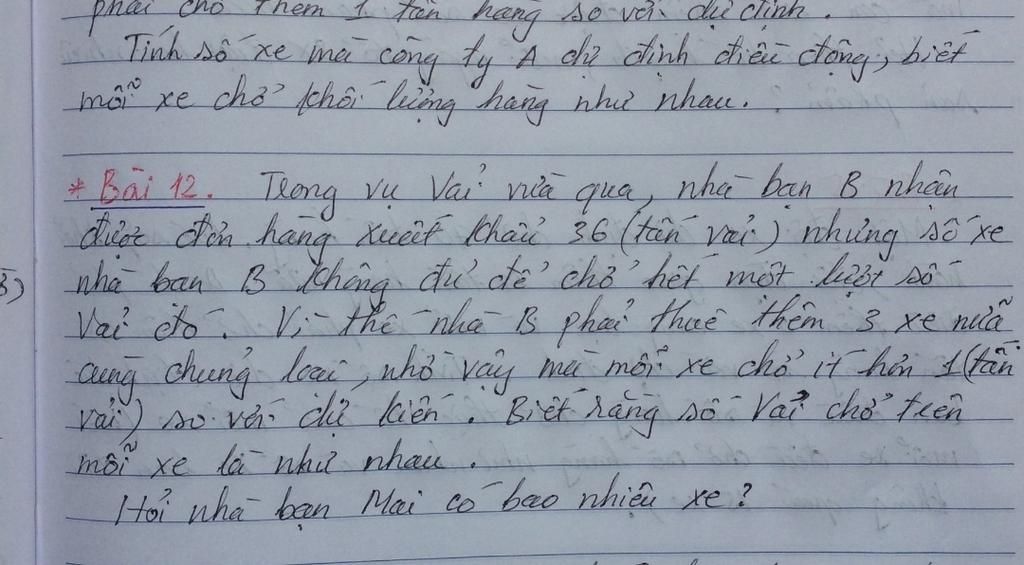 phải chở thêm 1 tấn hàng so với dự định.
Tính số xe mà công ty A dự định điều động, biết
mỗi xe chở khối lượng hàng như nhau.
* Bài 12. Trong vụ Vải vừa qua, nhà bạn B nhận
được đơn hàng xuất khẩu 36 (tấn vải) nhưng số xe
nhà bạn B không đủ để chở hết một lượt số
Vải đó. Vì thế nhà B phải thuê thêm 3 xe nữa
cùng chủng loại, nhờ vậy mà mỗi xe chở ít hơn 1 (tấn
vải) so với dự kiến. Biết rằng số Vải chở trên
mỗi xe là như nhau.
Hỏi nhà bạn Mai có bao nhiêu xe?